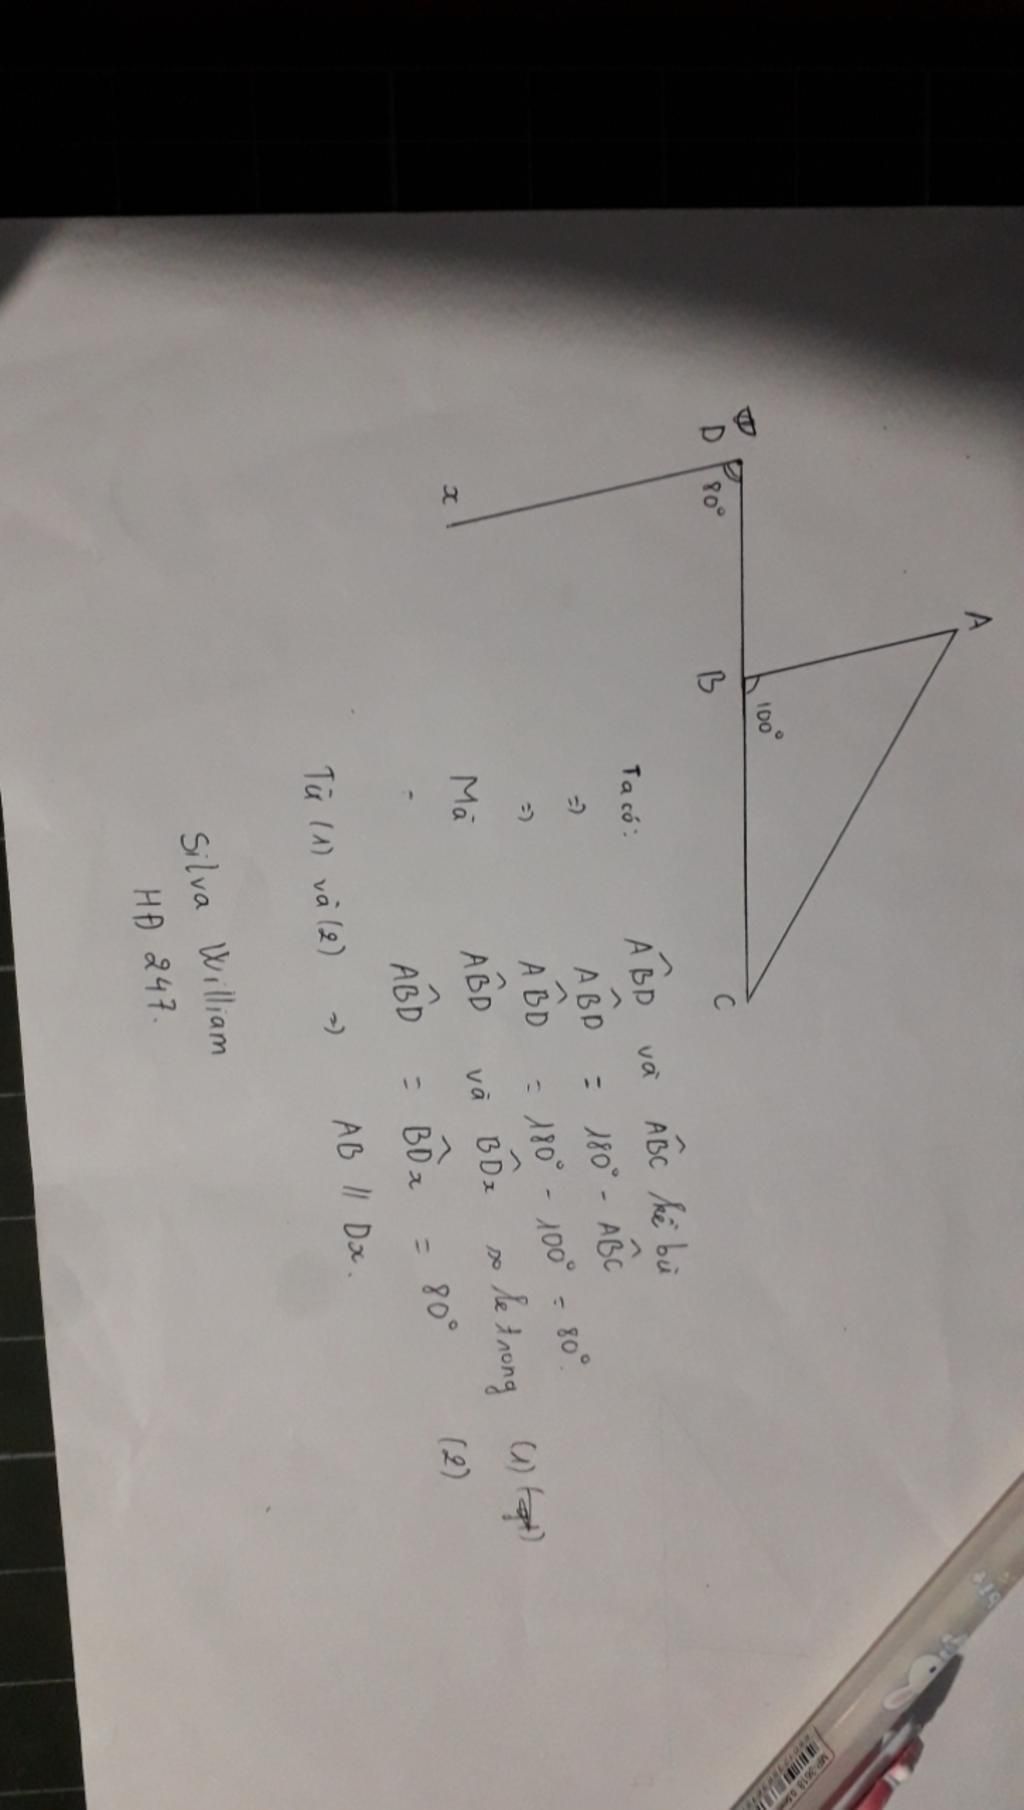 A
D
80°
B
100°
C
x
Ta có: ABD và ABC kề bù
=> ABD = 180° - ABC
=> ABD = 180° - 100° = 80°.
Mà ABD và BDx so le trong (1)
ABD = BDx = 80° (2)
Từ (1) và (2) => AB // Dx.
Silva William
HĐ 247.